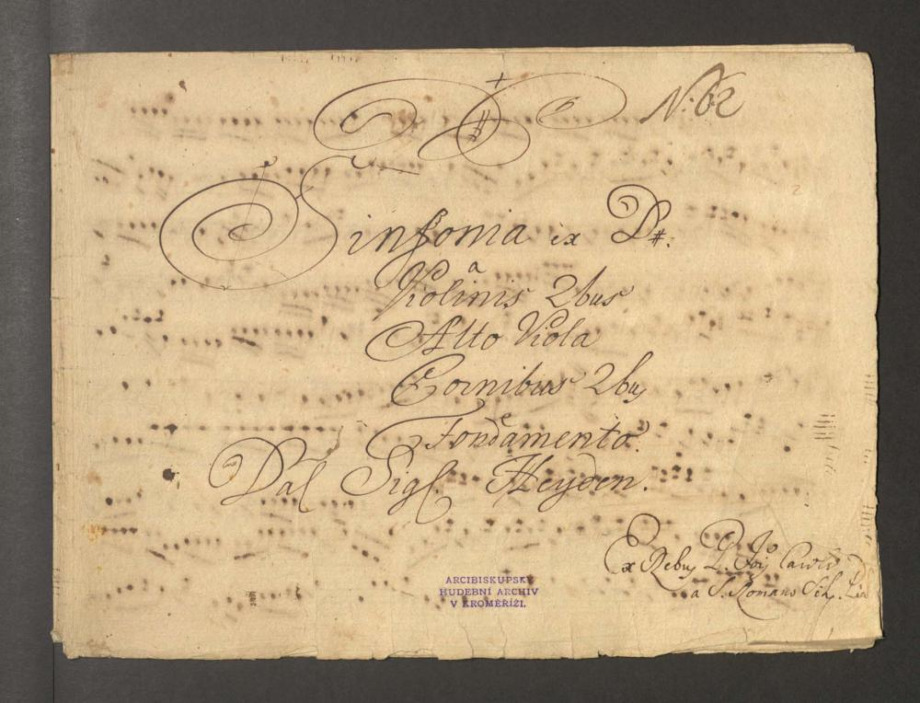 N: 62
Sinfonia ex D#.
a
Violinis 2bus
Alto Viola
Cornibus 2bus
e
Fondamento.
Dal Sigl. Heyden.
Ex Rebus P. Joĩs
a S. Romano
ARCIBISKUPSKÝ
HUDEBNÍ ARCHIV
V KROMĚŘÍŽI.